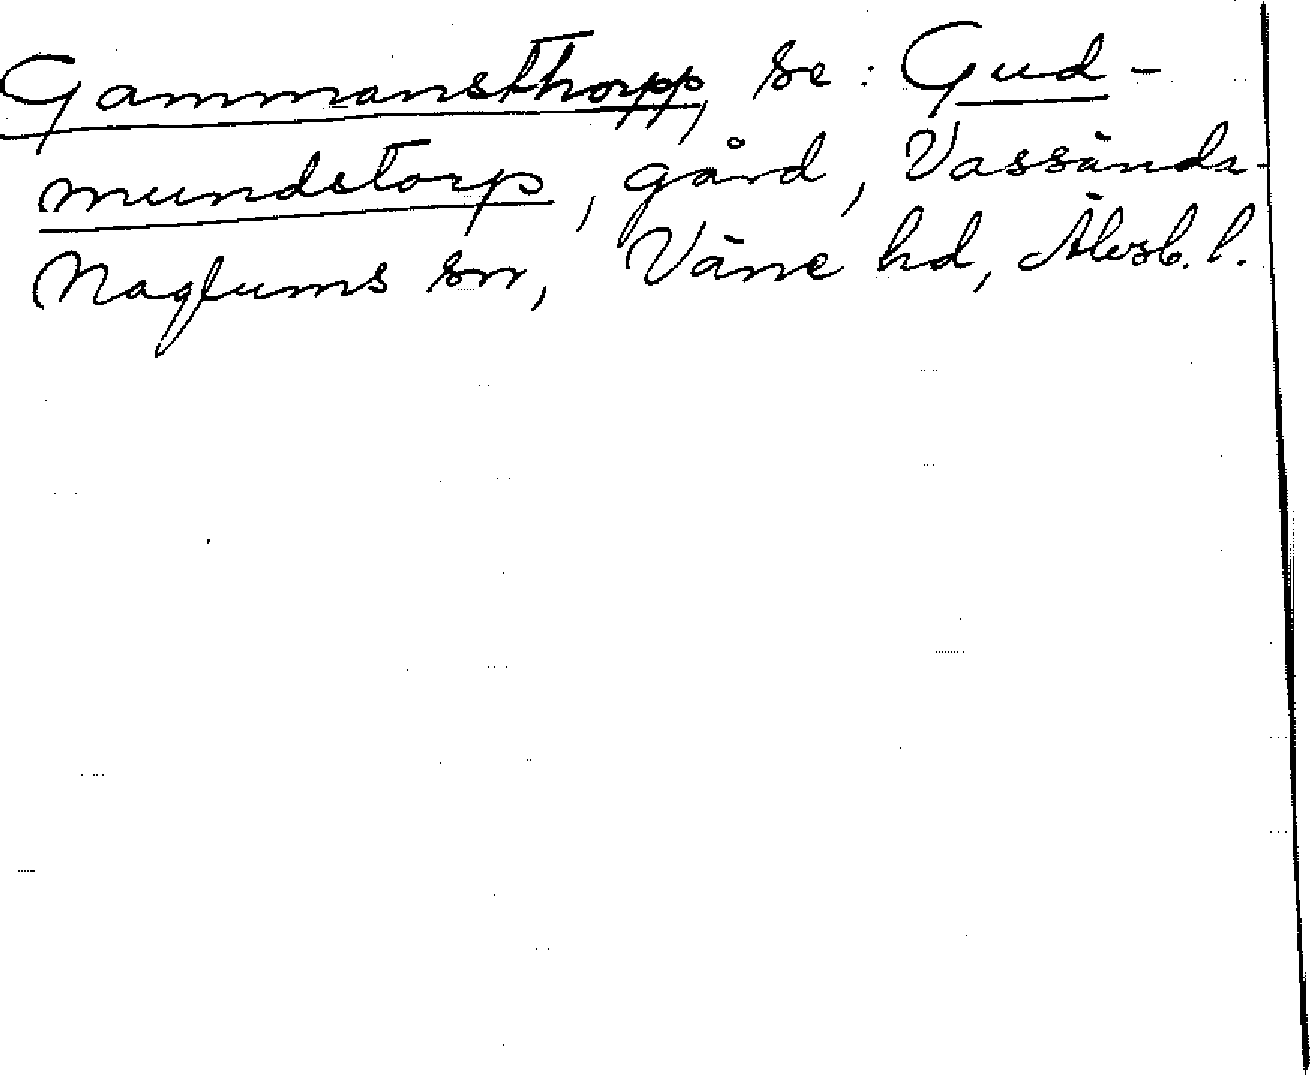 Gammansthorpp, se: Gud-
mundstorp, gård, Vassända-
Naglums sn, Väne hd, Älvsb. l.